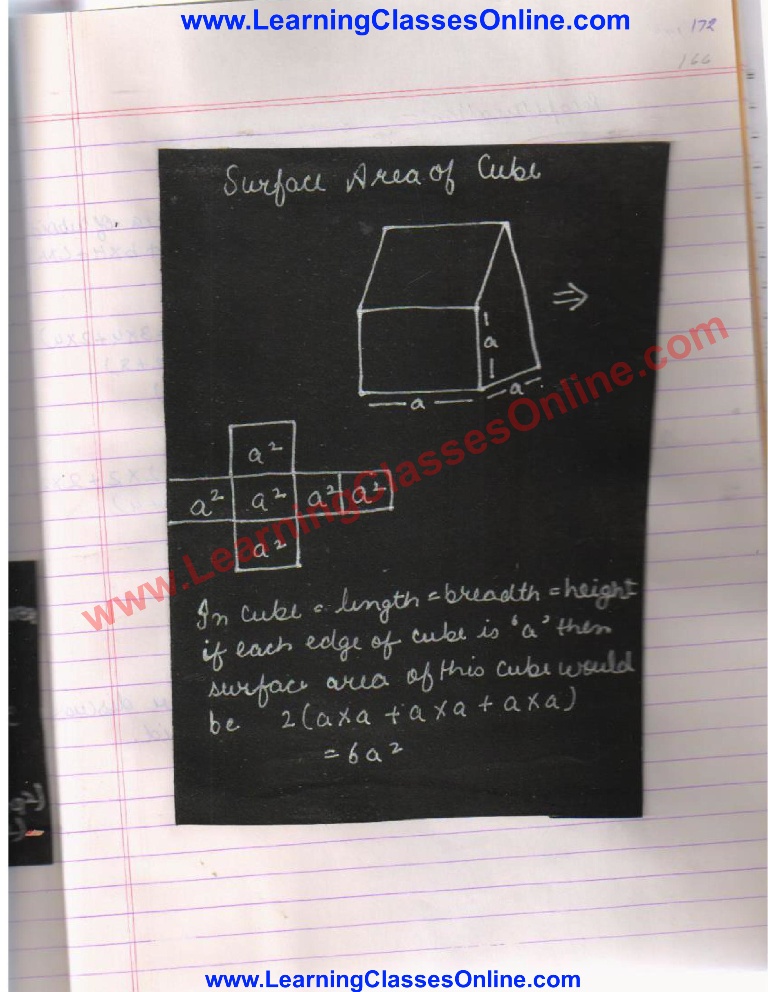 www.LearningClassesOnline.com
172
166
Surface Area of Cube
⇒
a
a
a
a²
a² a² a² a²
a²
www.LearningClassesOnline.com
In cube = length = breadth = height
if each edge of cube is 'a' then
surface area of this cube would
be 2(a×a + a×a + a×a)
= 6a²
www.LearningClassesOnline.com